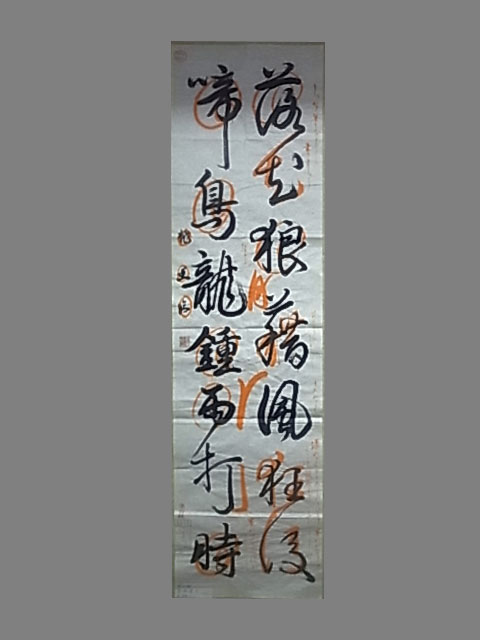 落花狼藉風狂後
啼鳥龍鍾雨打時